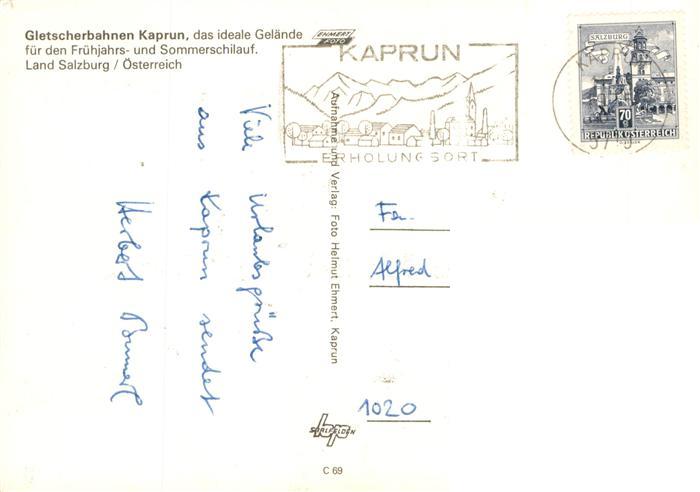 Gletscherbahnen Kaprun, das ideale Gelände
für den Frühjahrs- und Sommerschilauf.
Land Salzburg / Österreich
EHMERT
FOTO
KAPRUN
ERHOLUNGSORT
SALZBURG
70
REPUBLIK ÖSTERREICH
Viele Urlaubsgrüße
aus Kaprun sendet
Herbert
Aufnahme und Verlag: Foto Helmut Ehmert, Kaprun
Fam.
Alfred
1020
SAALFELDEN
C 69